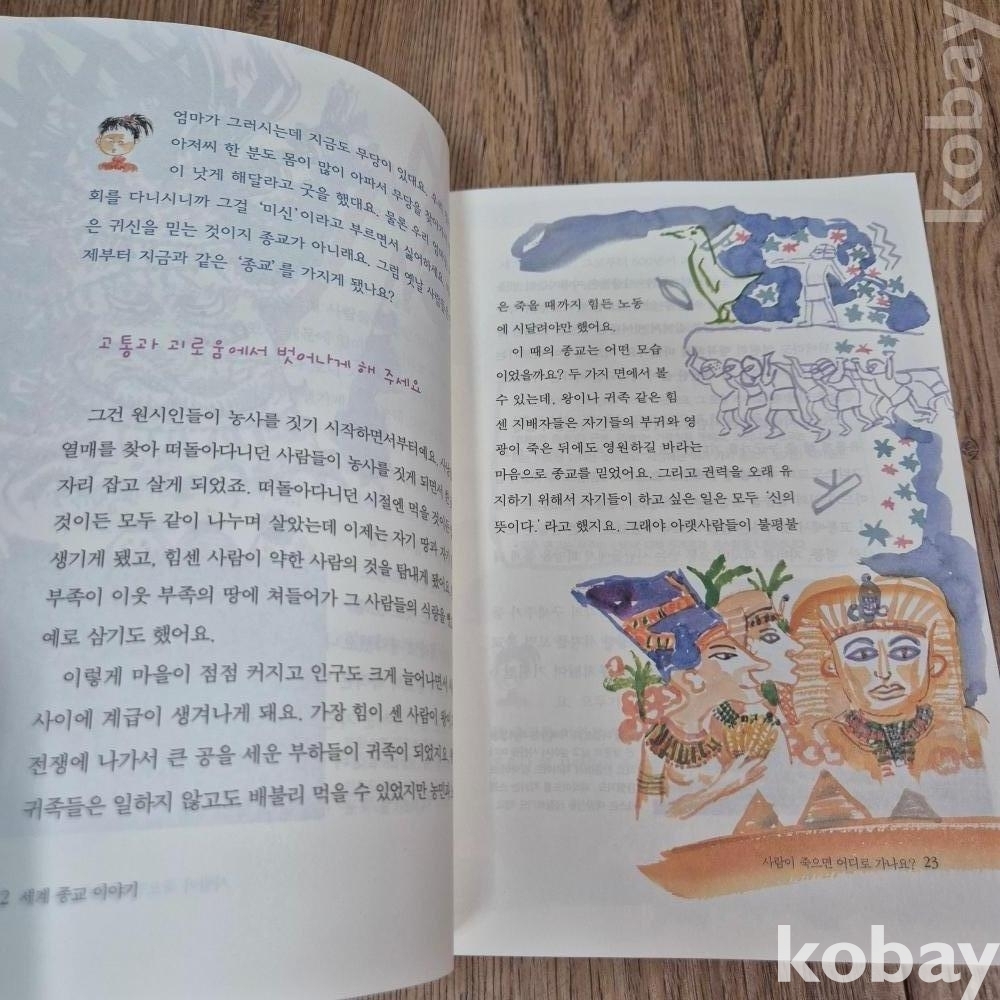 엄마가 그러시는데 지금도 무당이 있대요.
아저씨 한 분도 몸이 많이 아파서 무당을
이 낫게 해달라고 굿을 했대요. 물론 우리
회를 다니시니까 그걸 '미신'이라고 부르면서 싫어하세요.
은 귀신을 믿는 것이지 종교가 아니래요. 그럼 옛날
제부터 지금과 같은 '종교'를 가지게 됐나요?
고통과 괴로움에서 벗어나게 해 주세요
그건 원시인들이 농사를 짓기 시작하면서부터예요.
열매를 찾아 떠돌아다니던 사람들이 농사를 짓게 되면서
자리 잡고 살게 되었죠. 떠돌아다니던 시절엔 먹을 것이든
것이든 모두 같이 나누며 살았는데 이제는 자기 땅과
생기게 됐고, 힘센 사람이 약한 사람의 것을 탐내게 됐어요
부족이 이웃 부족의 땅에 쳐들어가 그 사람들의 식량을
예로 삼기도 했어요.
이렇게 마을이 점점 커지고 인구도 크게 늘어나면서
사이에 계급이 생겨나게 돼요. 가장 힘이 센 사람이
전쟁에 나가서 큰 공을 세운 부하들이 귀족이 되었지요
귀족들은 일하지 않고도 배불리 먹을 수 있었지만
2 세계 종교 이야기
은 죽을 때까지 힘든 노동
에 시달려야만 했어요.
이 때의 종교는 어떤 모습
이었을까요? 두 가지 면에서 볼
수 있는데, 왕이나 귀족 같은 힘
센 지배자들은 자기들의 부귀와 영
광이 죽은 뒤에도 영원하길 바라는
마음으로 종교를 믿었어요. 그리고 권력을 오래 유
지하기 위해서 자기들이 하고 싶은 일은 모두 '신의
뜻이다.'라고 했지요. 그래야 아랫사람들이 불평불
사람이 죽으면 어디로 가나요? 23
kobay
kobay